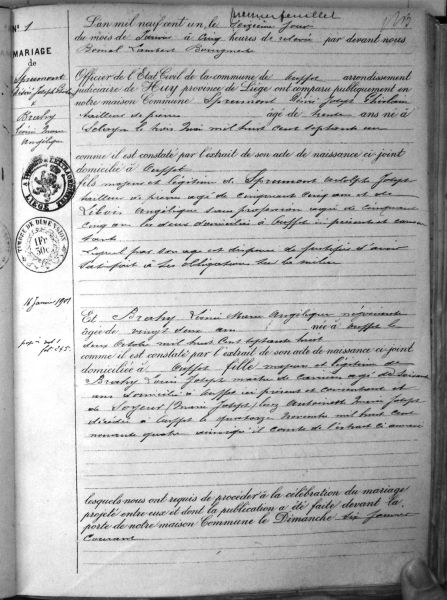 premier feuillet
N° 1
L'an mil neuf cent un, le seizième jour
du mois de Janvier à cinq heures de relevée par devant nous
Lambert
Officier de l'Etat Civil de la commune de Ouffet arrondissement
judiciaire de Huy province de Liège ont comparu publiquement en
notre maison Commune Sprumont Joseph Ghislain
tailleur de pierre âgé de trente ans né à
Sclayn le trois Mai mil huit cent septante un
comme il est constaté par l'extrait de son acte de naissance ci-joint
domicilié à Ouffet
fils majeur et légitime de Sprumont Adolphe Joseph
tailleur de pierre agé de cinquante cinq ans et de
Libois Angélique sans profession agée de cinquante
cinq ans les deux domiciliés à Ouffet ici présents et consen
tants
Lequel par son age est dispensé de justifier d'avoir
satisfait à ses obligations sur la milice
Et Brahy Marie Angélique négociante
âgée de vingt deux ans née à Ouffet le
deux Octobre mil huit cent septante huit
comme il est constaté par l'extrait de son acte de naissance ci-joint
domiciliée à Ouffet fille majeure et légitime de
Brahy Louis Joseph maitre de carrière agé de soixante
ans domicilié à Ouffet ici présent et consentant et
de Marie Joseph Antoinette Marie Joseph
décédée à Ouffet le quatorze Novembre mil huit cent
nonante quatre ainsi qu'il conste de l'extrait ci annexé
lesquels nous ont requis de procéder à la célébration du mariage
projeté entre eux et dont la publication a été faite devant la
porte de notre maison Commune le Dimanche six Janvier
Courant
MARIAGE
de
Sprumont
&
Brahy
Marie
Angélique
LIÈGE
TIMBRE DE DIMENSION
1 FR
50 c
16 Janvier 1901